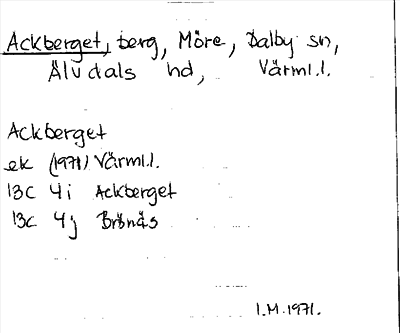 Ackberget, berg, Möre, Dalby sn,
Älvdals hd, Värml.l.
Ackberget
ek (1971) Värml.l.
13c 4i Ackberget
13c 4j Brönäs
I.M.1971.